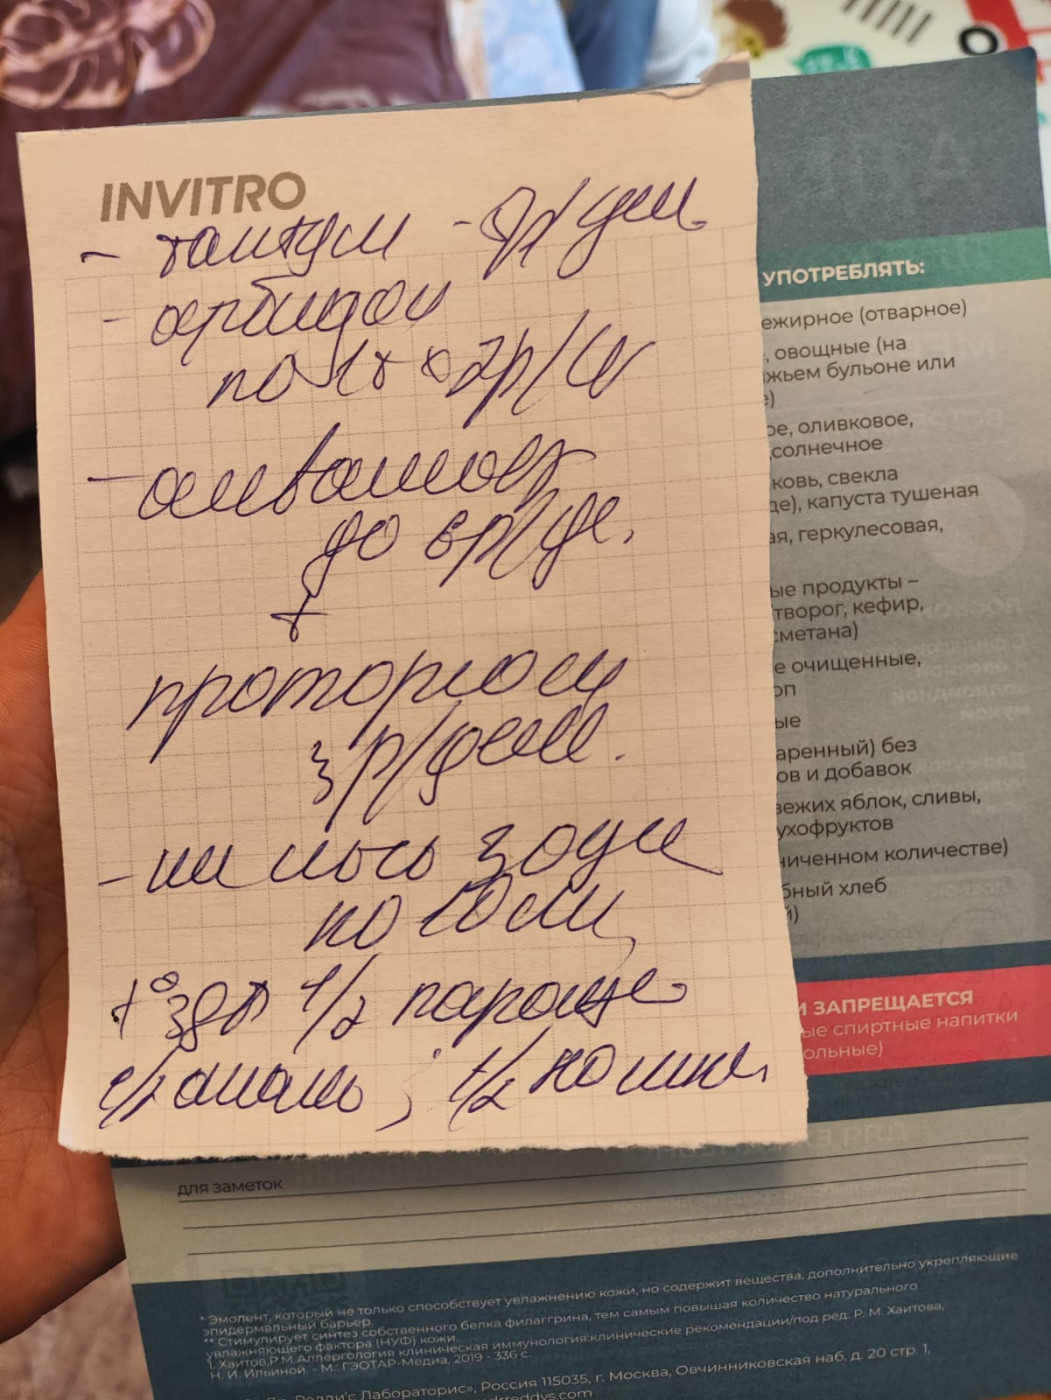 INVITRO
- тантум - р/день
- арбидол
по 1т х 2р/св
- аквамарис
до 6р/де.
+
проторгол
3 р/день.
- ин
по
t° 38 1/2 параце
1/2 аналь ; 1/2 ношп.
УПОТРЕБЛЯТЬ:
ежирное (отварное)
, овощные (на
жьем бульоне или
е)
ое, оливковое,
солнечное
ковь, свекла
де), капуста тушеная
ая, геркулесовая,
ые продукты –
творог, кефир,
сметана)
е очищенные,
оп
ые
аренный) без
ов и добавок
вежих яблок, сливы,
ухофруктов
ниченном количестве)
бный хлеб
й)
И ЗАПРЕЩАЕТСЯ
ые спиртные напитки
ольные)
для заметок
* Эмолент, который не только способствует увлажнению кожи, но содержит вещества, дополнительно укрепляющие
эпидермальный барьер.
** Стимулирует синтез собственного белка филаггрина, тем самым повышая количество натурального
увлажняющего фактора (НУФ) кожи.
1. Хаитов,Р.М.Аллергология клиническая иммунология:клинические рекомендации/под ред. Р. М. Хаитова,
Н. И. Ильиной. - М.: ГЭОТАР-Медиа, 2019 - 336 с.
Редди'с Лабораторис», Россия 115035, г. Москва, Овчинниковская наб, д. 20 стр. 1,